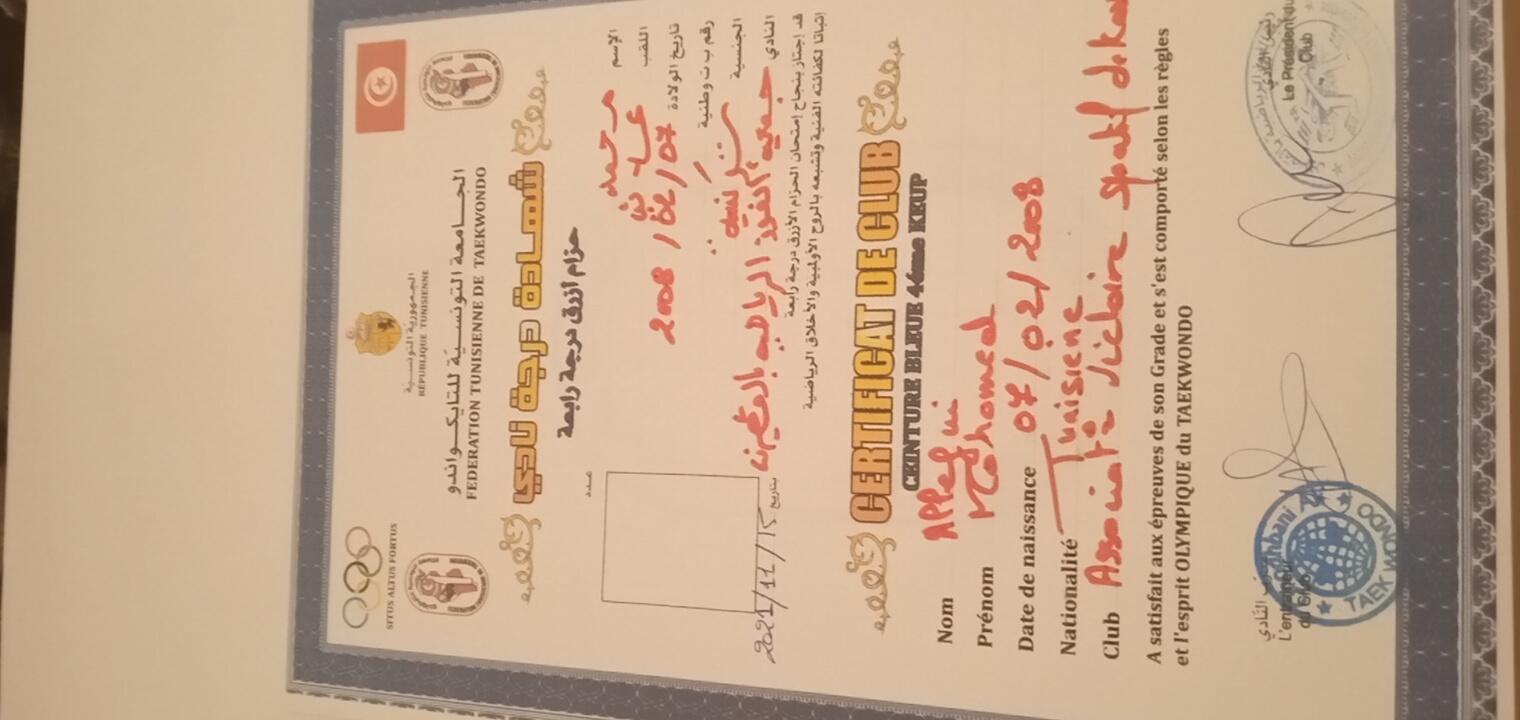 SITUS ALTUS FORTUS
الجمهورية التونسية
RÉPUBLIQUE TUNISIENNE
الجامعة التونسية للتايكواندو
FEDERATION TUNISIENNE DE TAEKWONDO
شهادة درجة نادي
حزام أزرق درجة رابعة
عدد
الإسم محمد
اللقب
تاريخ الولادة 2008/02/07
رقم ب ت وطنية
الجنسية تونسية
النادي جمعية الرياضية
قد إجتاز بنجاح إمتحان الحزام الأزرق درجة رابعة
إثباتا لكفائته الفنية وتشبعه بالروح الأولمبية والأخلاق الرياضية
بتاريخ 2021/11/15
CERTIFICAT DE CLUB
CEINTURE BLEUE 4éme KEUP
Nom
Prénom Mohamed
Date de naissance 07/02/2008
Nationalité Tunisiene
Club
A satisfait aux épreuves de son Grade et s'est comporté selon les règles
et l'esprit OLYMPIQUE du TAEKWONDO
النادي
L'entraineur
du Club
رئيس النادي
Le Président du
Club
TAEKWONDO